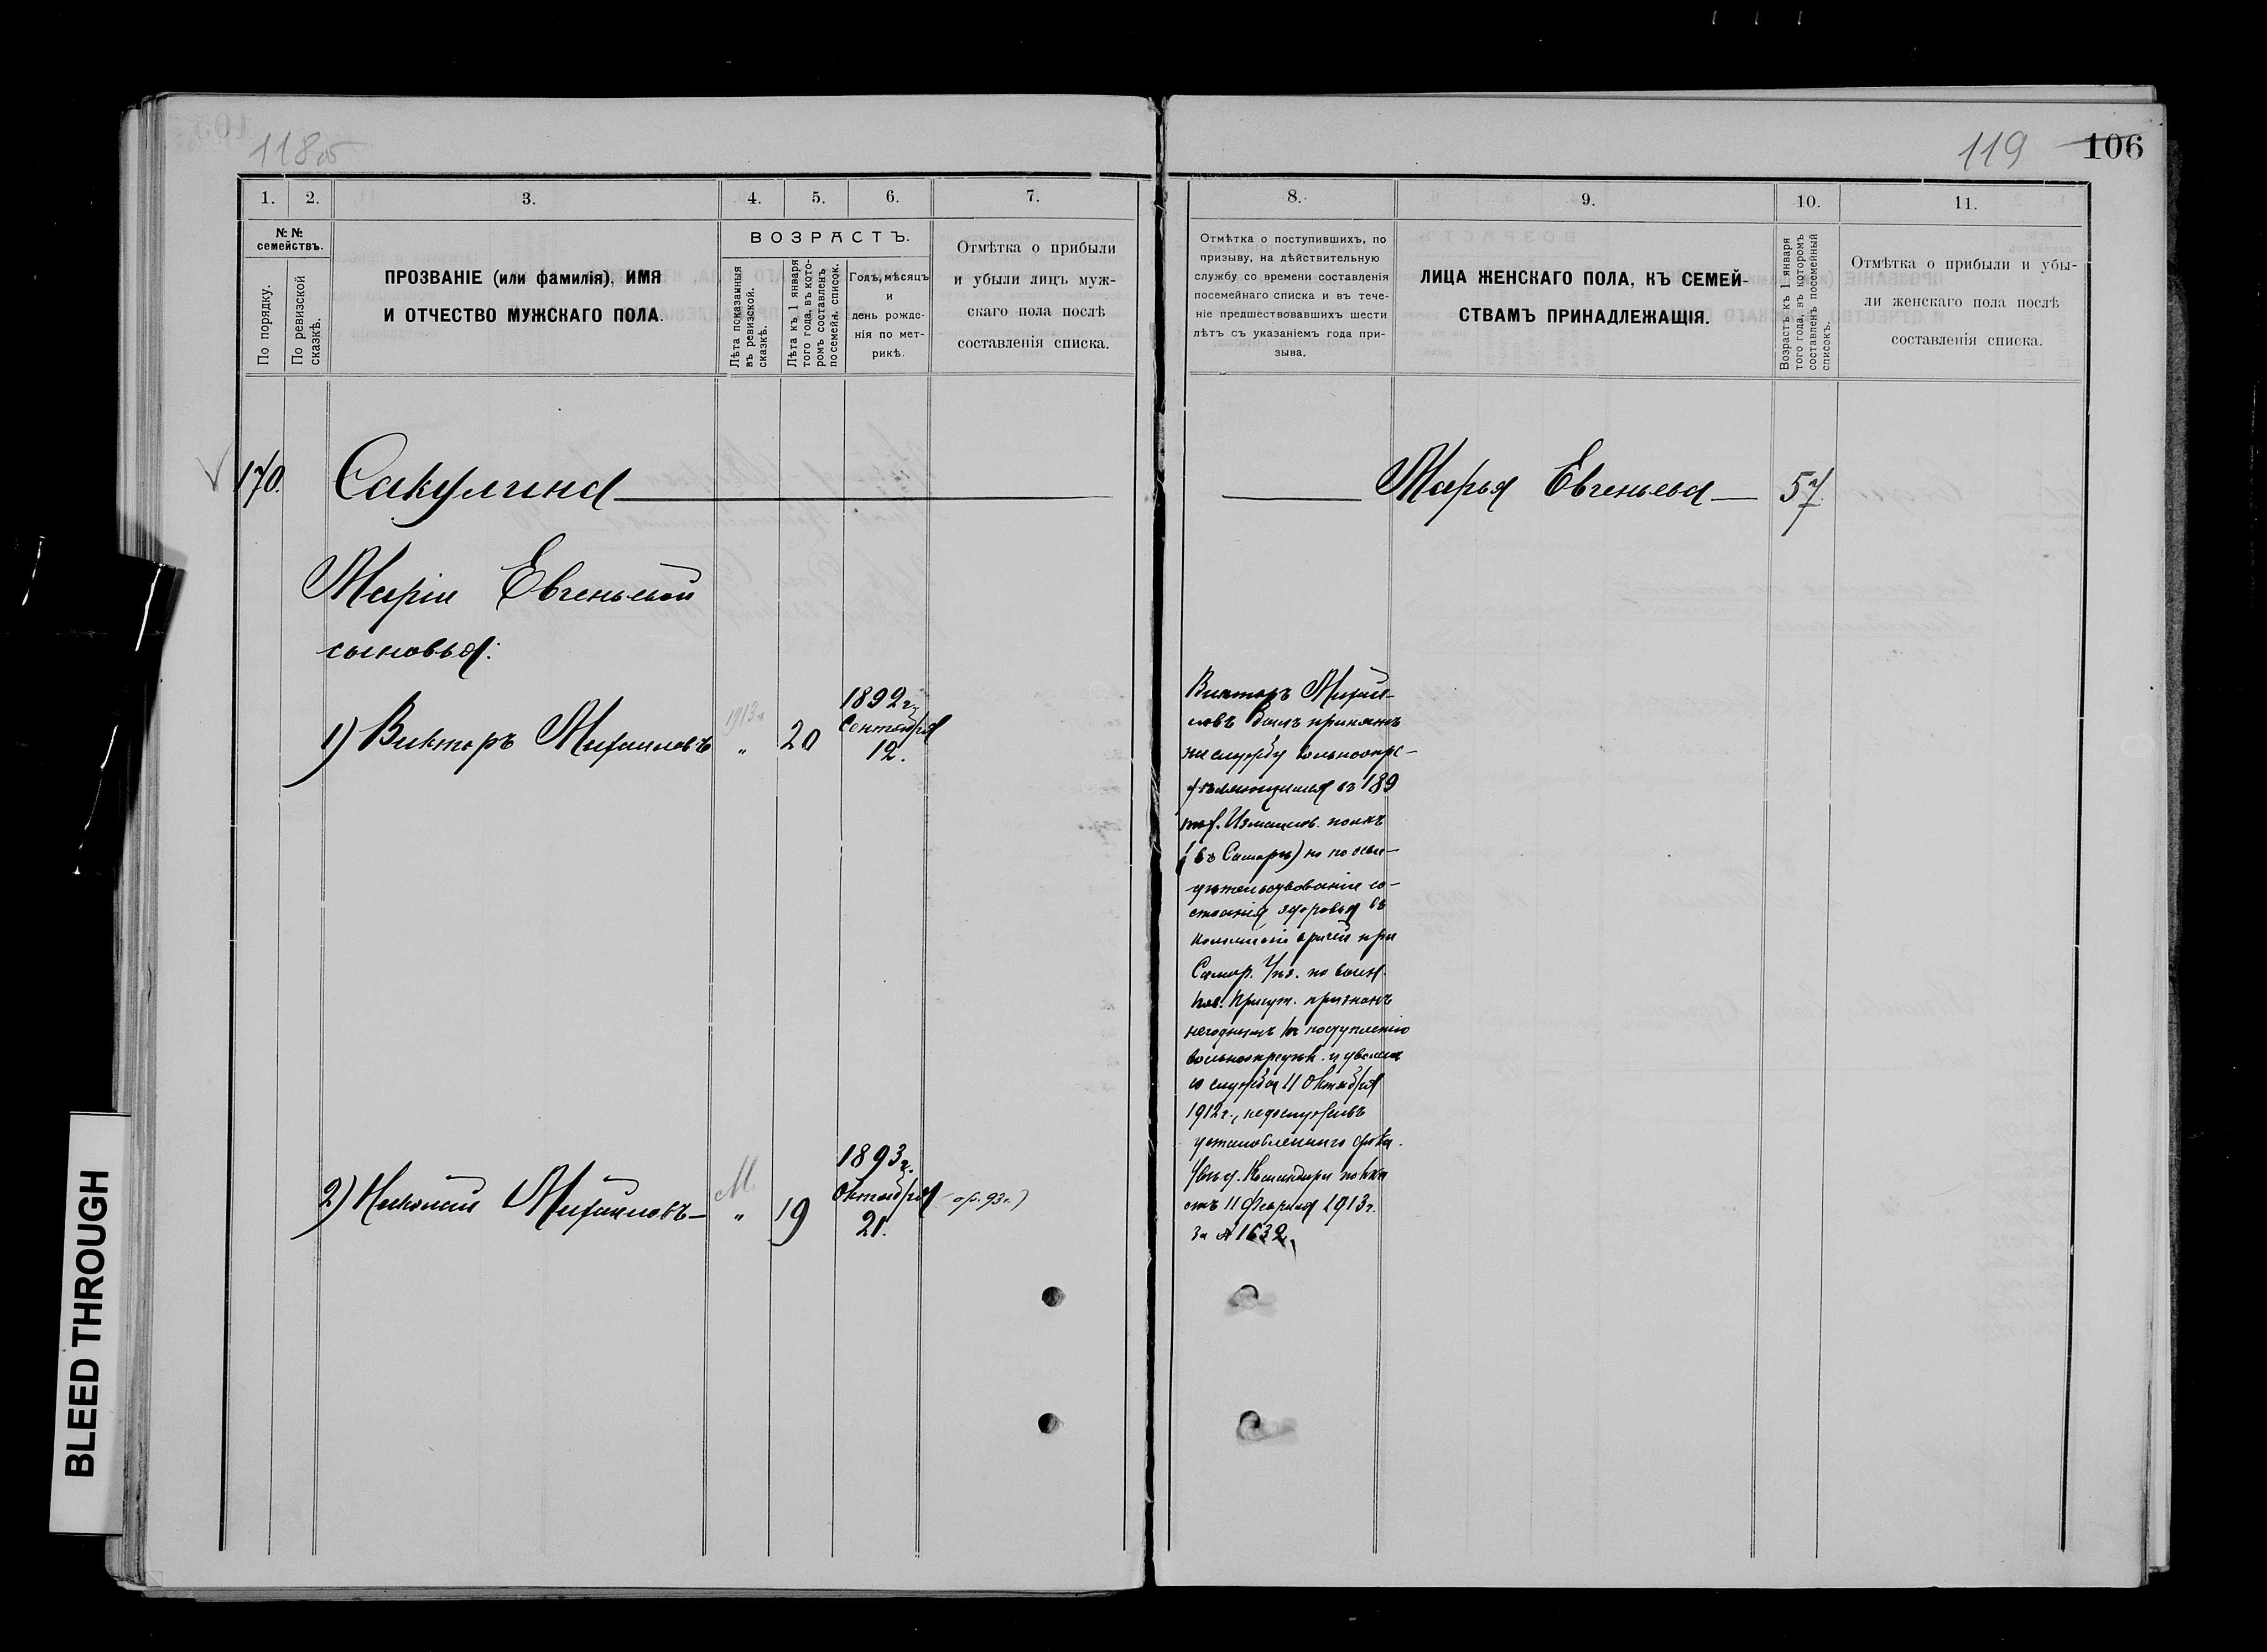 118об
119 106
1. 2. 3. 4. 5. 6. 7.
№ №
семействъ.
По порядку.
По ревизской
сказкѣ.
ПРОЗВАНІЕ (или фамилія), ИМЯ
И ОТЧЕСТВО МУЖСКАГО ПОЛА.
ВОЗРАСТЪ.
Лѣта показанныя
въ ревизской.
сказкѣ.
Лѣта къ 1 января
того года, въ кото-
ромъ составленъ
посемейн. список.
Годъ, мѣсяцъ
и
день рожде-
нія по мет-
рикѣ.
Отмѣтка о прибыли
и убыли лицъ муж-
скаго пола послѣ
составленія списка.
170. Сакулина
Маріи Евгеньевой
сыновья:
1) Викторъ Михаиловъ 1913 г. „ 20
1892 г.
Сентября
12.
2) Николай Михаиловъ М „ 19
1893 г.
Октября
21.
8. 9. 10. 11.
Отмѣтка о поступившихъ, по
призыву, на дѣйствительную
службу со времени составленія
посемейнаго списка и въ тече-
ніе предшествовавшихъ шести
лѣтъ съ указаніемъ года при-
зыва.
ЛИЦА ЖЕНСКАГО ПОЛА, КЪ СЕМЕЙ-
СТВАМЪ ПРИНАДЛЕЖАЩІЯ.
Возрастъ къ 1 января
того года, въ которомъ
составленъ посемейный
списокъ.
Отмѣтка о прибыли и убы-
ли женскаго пола послѣ
составленія списка.
Марья Евгеньева 57.
Викторъ Михаи-
ловъ былъ принятъ
на службу вольноопре-
дѣляющимся въ 189
пѣх. Измаилов. полкъ
(въ Самарѣ) но по осви-
дѣтельствованіи со-
стоянія здоровья въ
комиссіи врачей при
Самар. Уѣз. по воин.
пов. Присут. признанъ
негоднымъ къ поступленію
вольноопредѣл. и уволенъ
со службы 11 Октября
1912 г., недослуживъ
установленнаго срока.
Увѣд. Командира полка
отъ 11 Февраля 1913 г.
за № 1632.
BLEED THROUGH